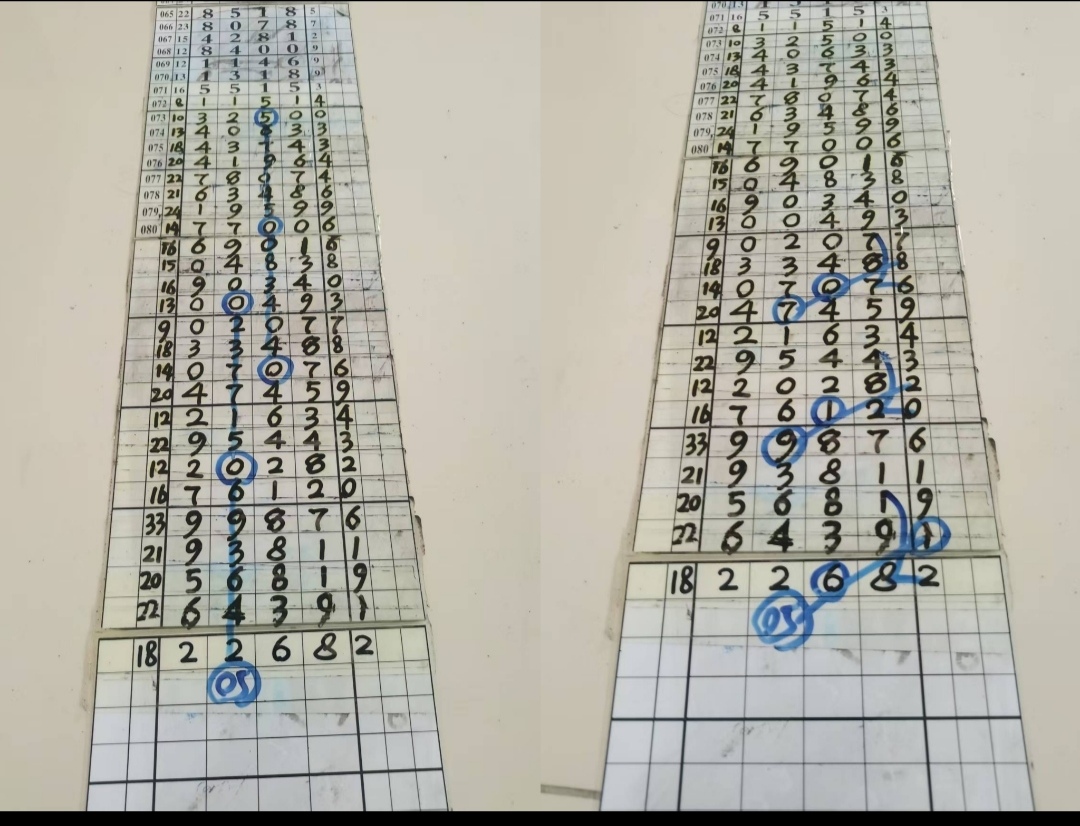 065 22 8 5 1 8 5
066 23 8 0 7 8 7
067 15 4 2 8 1 2
068 12 8 4 0 0 9
069 12 1 1 4 6 9
070 13 1 3 1 8 9
071 16 5 5 1 5 3
072 8 1 1 5 1 4
073 10 3 2 5 0 0
074 13 4 0 6 3 3
075 18 4 3 7 4 3
076 20 4 1 9 6 4
077 22 7 8 0 7 4
078 21 6 3 4 8 6
079 24 1 9 5 9 9
080 14 7 7 0 0 6
16 6 9 0 1 6
15 0 4 8 3 8
16 9 0 3 4 0
13 0 0 4 9 3
9 0 2 0 7 7
18 3 3 4 8 8
14 0 7 0 7 6
20 4 7 4 5 9
12 2 1 6 3 4
22 9 5 4 4 3
12 2 0 2 8 2
16 7 6 1 2 0
33 9 9 8 7 6
21 9 3 8 1 1
20 5 6 8 1 9
22 6 4 3 9 1
18 2 2 6 8 2
05
071 16 5 5 1 5 3
072 8 1 1 5 1 4
073 10 3 2 5 0 0
074 13 4 0 6 3 3
075 18 4 3 7 4 3
076 20 4 1 9 6 4
077 22 7 8 0 7 4
078 21 6 3 4 8 6
079 24 1 9 5 9 9
080 14 7 7 0 0 6
16 6 9 0 1 6
15 0 4 8 3 8
16 9 0 3 4 0
13 0 0 4 9 3
9 0 2 0 7 7
18 3 3 4 8 8
14 0 7 0 7 6
20 4 7 4 5 9
12 2 1 6 3 4
22 9 5 4 4 3
12 2 0 2 8 2
16 7 6 1 2 0
33 9 9 8 7 6
21 9 3 8 1 1
20 5 6 8 1 9
22 6 4 3 9 1
18 2 2 6 8 2
05